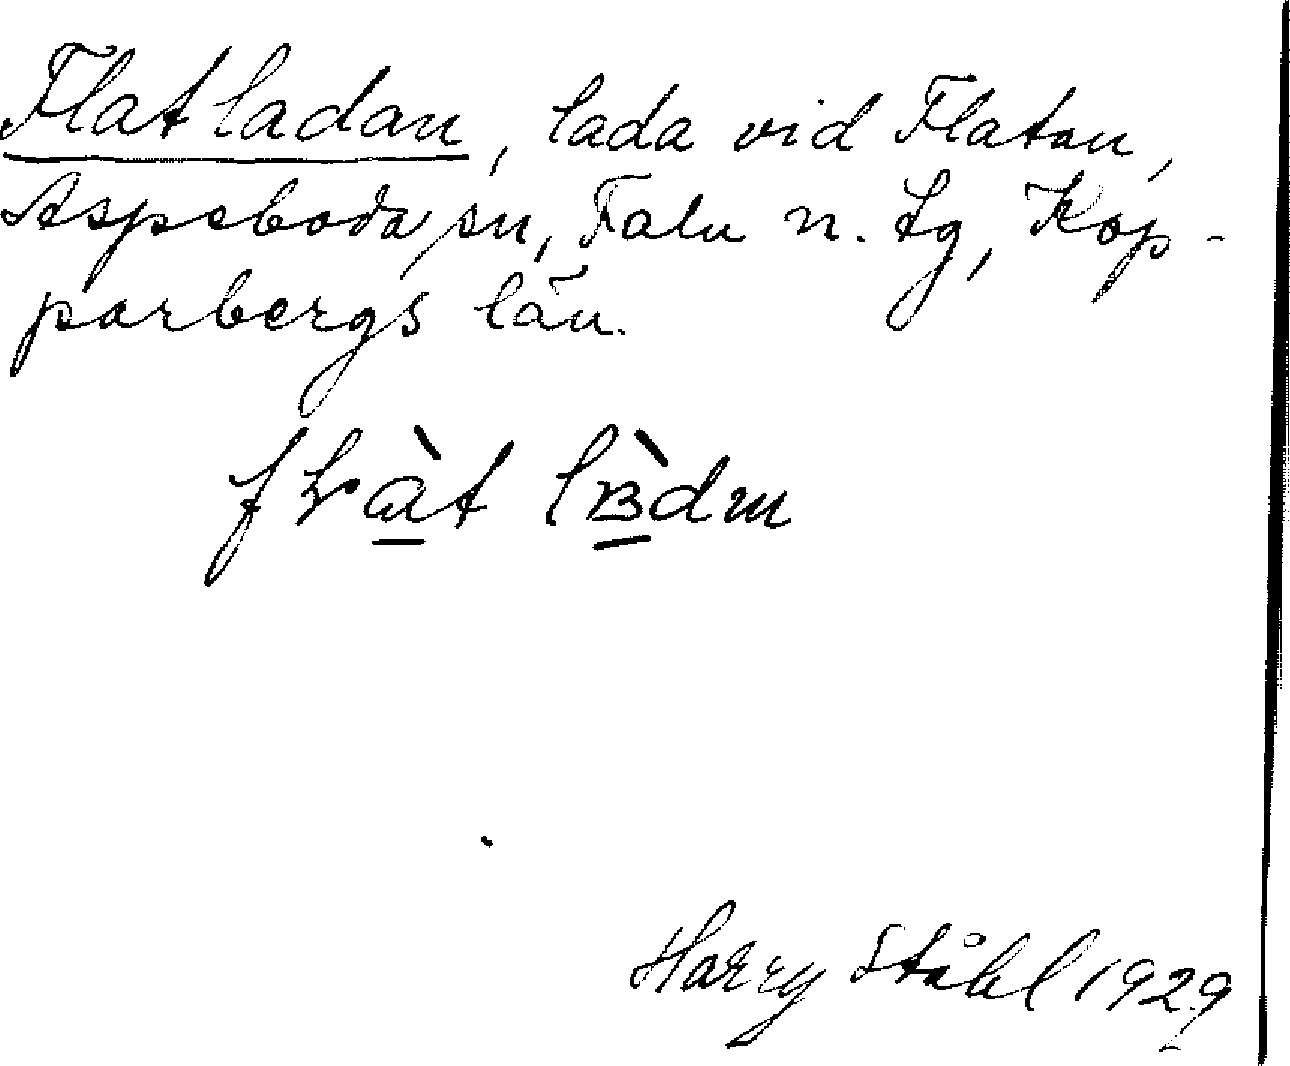 Flatladan, lada vid Flatan,
Aspeboda sn, Falu n. tg, Kop-
parbergs län.
Harry Ståhl 1929